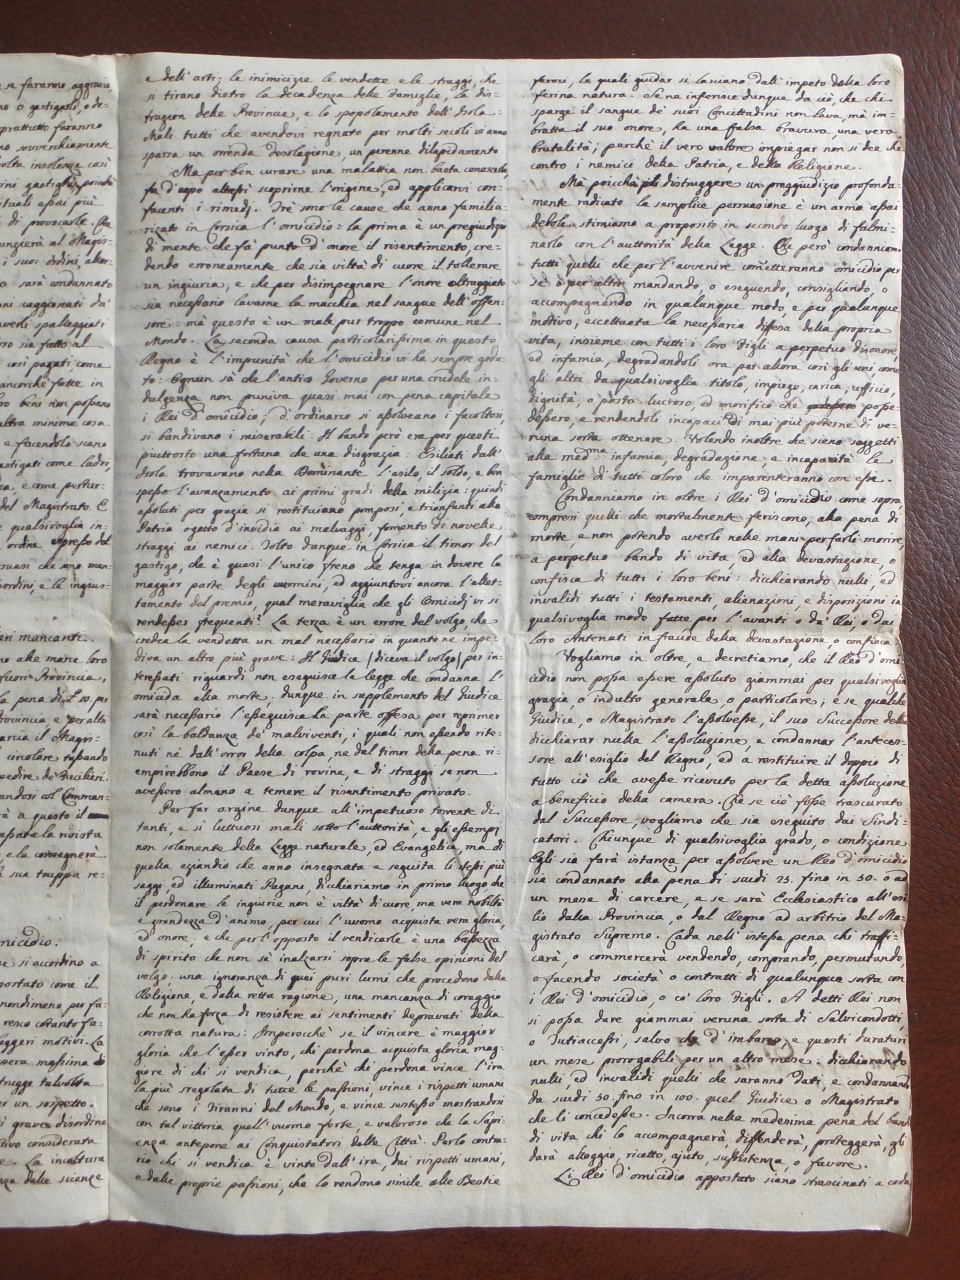 e se faranno aggravi
no o gastigarli, o de-
prattutto faranno
no sovvenimente
olta insolenza così
rini gastighi, poichè
ituali assai più
di provocarle. Che
unzierà al Magis-
i suoi ordini, alor-
o sarà condannato
ani vaggionati da'
uversi spalleggiati
oro sia fatto al
i pagati come
ancorchè fatte in
oro beni non possano
altra minima cosa
e facendolo siano
astigati come ladri,
za, e come pertur-
del Magistrato. E
e qualsivoglia in-
ordine espresso del
suasi che sono man-
sordini, e le ingius-
eri mancanti.
no alle marce loro
fuori Provincia,
la pena di £ 10. per
Provincia e per altri
marcia il Magis-
circolare tassando
pedire de' Fucilieri.
andosi col Comman-
rà a questo il
assata la rivista
, e la consegnerà
a sua truppa re-
micidio.
e si accordino a
portato come il
nondimeno per fa-
reso cotanto fa-
leggeri motivi. La
pera massima di
trugge talvolta
er un sospetto.
i grave disordine
tivo considerata
e. La incoltura
nza delle scienze
e dell'arti; le inimicizie le vendette e le straggi, che
si tirano dietro la decadenza delle Famiglie, la dis-
truzion delle Provincie, e lo spopolamento dell'Isola.
Mali tutti che avendovi regnato per molti secoli vi anno
sparsa un orrenda desolazione, un perenne dilapidamento
Ma per ben curare una malattia non basta conoscerla,
fa d'uopo altresì scoprirne l'origine, ed applicarvi con-
facenti i rimedj. Trè sono le cause che anno familia-
rizato in Corsica l'omicidio: la prima è un pregiudizio
di mente che fa' punto d'onore il risentimento, cre-
dendo erroneamente che sia viltà di cuore il tollerare
un ingiuria, e che per disimpegnare l'onore oltraggiato
sia necessario lavarne la macchia nel sangue dell'offen-
sore: mà questo è un male pur troppo comune nel
Mondo. La seconda causa particolarissima in questo
Regno è l'impunità che l'omicidio vi ha sempre godu-
to: Ognun sà che l'antico Governo per una crudele in-
dulgenza non puniva quasi mai con pena capitale
i Rei d'omicidio; d'ordinario si assolveano i facoltosi,
si bandivano i miserabili. Il bando però era per questi
piuttosto una fortuna che una disgrazia: Esiliati dall'
Isola trovavano nella Dominante l'asilo, il soldo, e ben
spesso l'avanzamento ai primi gradi della milizia: quindi
assoluti per grazia si restituivano pomposi, e trionfanti alla
Patria ogetto d'invidia ai malvaggi, fomento di novelle
straggi ai nemici. Tolto dunque in Corsica il timor del
gastigo, che è quasi l'unico freno che tenga in dovere la
maggior parte degli uuomini, ed aggiuntovi ancora l'allet-
tamento del premio, qual meraviglia che gli Omicidj vi si
rendesser frequenti? La terza è un errore del volgo che
credea la vendetta un mal necessario in quanto ne impe-
diva un altro più grave: Il Judice (diceva il volgo) per in-
teressati riguardi non eseguisce la legge che condanna l'
omicida alla morte; dunque in supplemento del Judice
sarà necessario l'esseguisca la parte offesa per reprimer
così la baldanza de' malviventi, i quali non essendo rite-
nuti ne dall'orror della colpa, ne dal timor della pena ri-
empirebbono il Paese di rovine, e di straggi se non
avessero almeno a temere il risentimento privato.
Per far argine dunque all'impetuoso torrente di
tanti, e sì luttuosi mali sotto l'auttorità, e gli essempj
non solamente della Legge naturale, ed Evangelica, ma di
quella eziandio che anno insegnata e seguita li stessi più
saggi, ed illuminati Pagani, dichiariamo in primo luogo che
il perdonare le ingiurie non è viltà di cuore, ma vera nobiltà
e grandezza d'animo, per cui l'uuomo acquista vera gloria,
ed onore, e che per l'opposto il vendicarle è una bassezza
di spirito che non sè inalzarsi sopra le false opinioni del
volgo, una ignoranza di quei puri lumi che procedono dalla
Religione, e dalla retta ragione, una mancanza di coraggio
che non ha forza di resistere ai sentimenti depravati della
corrotta natura: Imperochè se il vincere è maggior
gloria che l'esser vinto, chi perdona acquista gloria mag-
giore di chi si vendica, perchè chi perdona vince l'ira
la più sregolata di tutte le passioni, vince i rispetti umani
che sono i Tiranni del Mondo, e vince se stesso mostrandosi
con tal vittoria quell'uuomo forte, e valoroso che la Sapi-
enza antepone ai Conquistatori delle Città. Perlo contra-
rio chi si vendica è vinto dall'ira, dai rispetti umani,
e dalle proprie passioni, che lo rendono simile alle Bestie
feroci, le quali guidar si lasciano dall'impeto della loro
ferina natura. Se ne inferisce dunque da ciò, che chi
sparge il sangue de' suoi Concittadini non lava, mà im-
bratta il suo onore, ha una falsa bravura, una vera
brutalità; perchè il vero valore impiegar non si dee che
contro i nemici della Patria, e della Religione.
Mà poicchè per distruggere un preggiudizio profonda-
mente radicato la semplice persuasione è un arma assai
debole, stimiamo a proposito in secondo luogo di fulmi-
narlo con l'auttorità della Legge. Che però condanniamo
tutti quelli che per l'avvenire commetteranno omicidio per
sè o per altri mandando, o eseguendo, consigliando, o
accompagnando in qualunque modo, e per qualunque
motivo, eccettuata la necessaria difesa della propria
vita, insieme con tutti i loro Figli a perpetuo disonore,
ed infamia, degradandoli ora per allora così gli uni, come
gli altri da qualsivoglia titolo, impiego, carica, ufficio,
dignità, o posto lucroso, ed onorifico che posse-
dessero, e rendendoli incapaci di mai più poterne di ve-
runa sorta ottenere. Volendo inoltre che sieno soggetti
alla medma infamia, degradazione, e incapacità le
famiglie di tutti coloro che imparenteranno con esse.
Condanniamo in oltre i Rei d'omicidio come sopra,
compresi quelli che mortalmente feriscono, alla pena di
morte e non potendo averli nelle mani per farli morire,
a perpetuo bando di vita, ed alla devastazione, o
confisca di tutti i loro beni: dichiarando nulli, ed
invalidi tutti i testamenti, alienazioni, e disposizioni in
qualsivoglia modo fatte per l'avanti o da' Rei, o dai
loro Antenati in fraude della devastazione, o confisca
Vogliamo in oltre, e decretiamo, che il Reo d'omi-
cidio non possa essere assoluto giammai per qualsivoglia
grazia, o indulto generale, o particolare; e se qualche
Giudice, o Magistrato l'assolvesse, il suo Successore debba
dicchiarar nulla l'assoluzione, e condannar l'anteces-
sore all'esiglio del Regno, ed a restituire il doppio di
tutto ciò che avesse ricevuto per la detta assoluzione
a beneficio della camera. Che se ciò fosse trascurato
dal Successore, vogliamo che sia eseguito dai Sindi-
catori. Chiunque di qualsivoglia grado, o condizione
Egli sia farà istanza per assolvere un Reo d'omicidio
sia condannato alla pena di scudi 25. fino in 50. o ad
un mese di carcere, e se sarà Ecclesiastico all'esi-
lio dalla Provincia, o dal Regno ad arbitrio del Ma-
gistrato Supremo. Cada nell'istessa pena chi traffi-
carà, o commercerà vendendo, comprando, permutando,
o facendo società o contratti di qualunque sorta con
i Rei d'omicidio, o co' loro Figli. A detti Rei non
si possa dare giammai veruna sorta di Salvicondotti,
o Tutiaccessi, salvo che d'imbarco, e questi duraturi
un mese prorogabili per un altro mese: dichiarando
nulli, ed invalidi quelli che saranno dati, e condannando
da scudi 50. fino in 100. quel Giudice, o Magistrato
che li concedesse. Incorra nella medesima pena del bando
di vita chi lo accompagnerà, diffenderà, proteggerà, gli
darà alloggio, ricetto, ajuto, sussistenza, o favore.
Li Rei d'omicidio appostato siano strascinati a coda